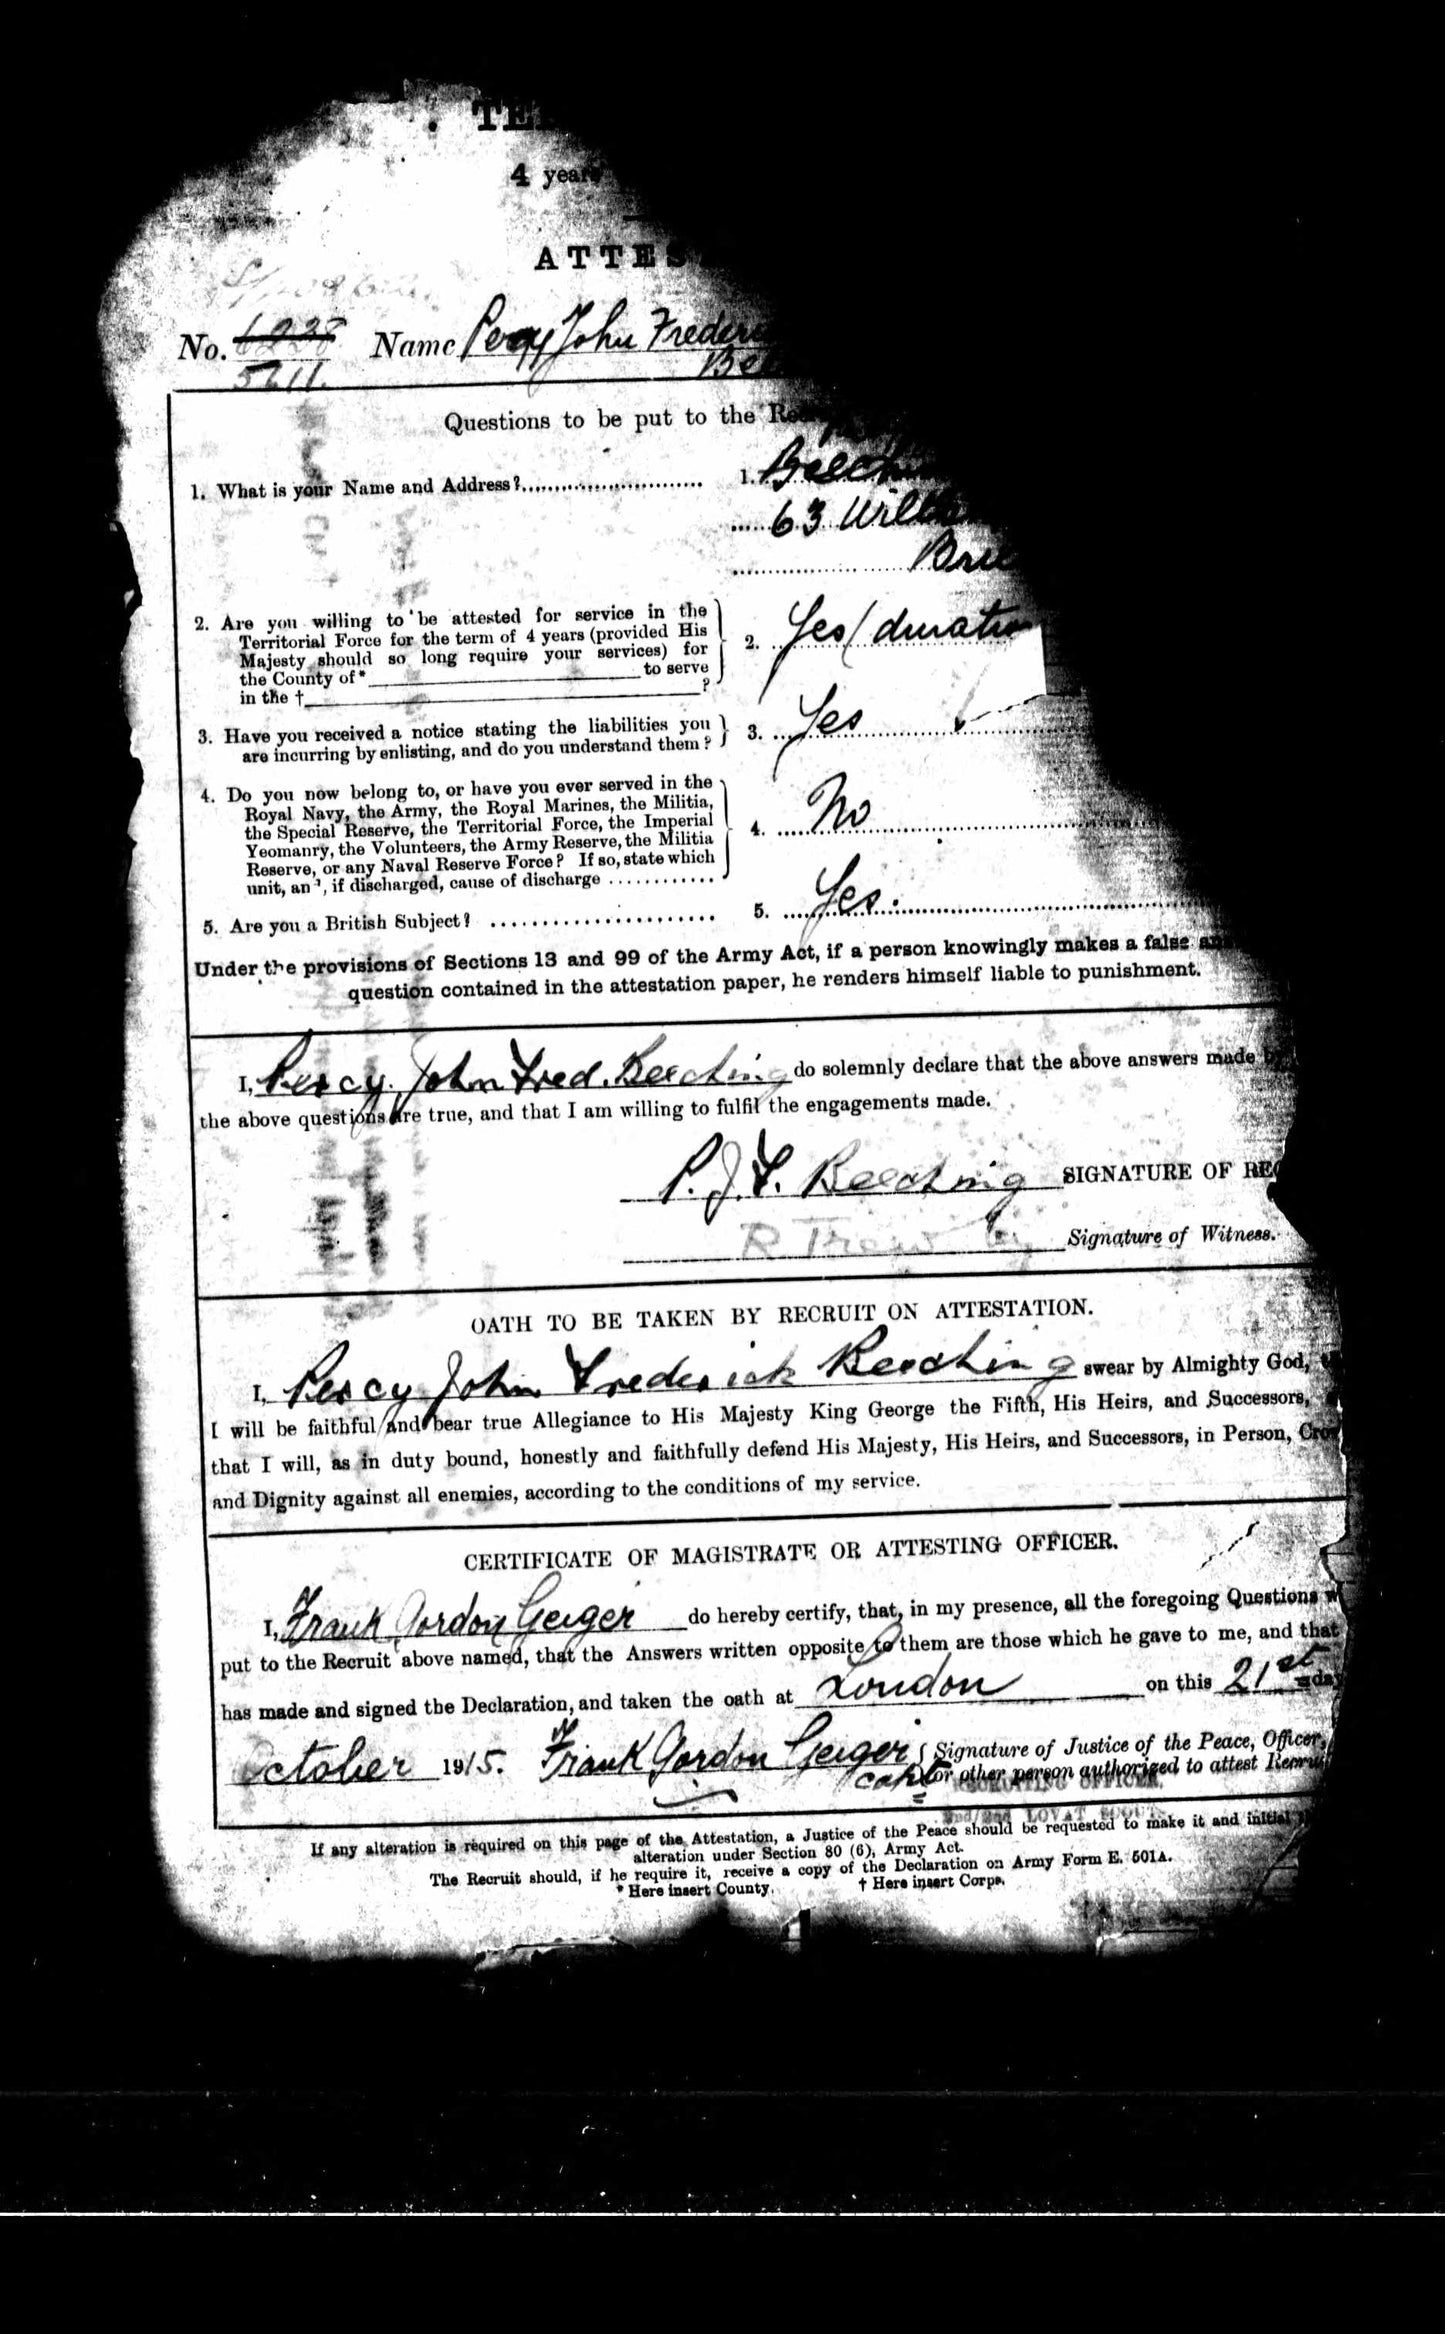 TE
4 years
ATTES
No. 6238 Name Percy John Frederi
5611. Bee
Questions to be put to the Rec
1. What is your Name and Address? 1. Beechi
63 Will
Bri
2. Are you willing to be attested for service in the
Territorial Force for the term of 4 years (provided His
Majesty should so long require your services) for
the County of* to serve
in the † ?
2. Yes (duration
3. Have you received a notice stating the liabilities you
are incurring by enlisting, and do you understand them?
3. Yes
4. Do you now belong to, or have you ever served in the
Royal Navy, the Army, the Royal Marines, the Militia,
the Special Reserve, the Territorial Force, the Imperial
Yeomanry, the Volunteers, the Army Reserve, the Militia
Reserve, or any Naval Reserve Force? If so, state which
unit, an , if discharged, cause of discharge
4. No
5. Are you a British Subject? 5. Yes.
Under the provisions of Sections 13 and 99 of the Army Act, if a person knowingly makes a false an
question contained in the attestation paper, he renders himself liable to punishment.
I, Percy John Fred. Beeching do solemnly declare that the above answers made by
the above questions are true, and that I am willing to fulfil the engagements made.
P. J. F. Beeching SIGNATURE OF REC
R Signature of Witness.
OATH TO BE TAKEN BY RECRUIT ON ATTESTATION.
I, Percy John Frederick Beeching swear by Almighty God,
I will be faithful and bear true Allegiance to His Majesty King George the Fifth, His Heirs, and Successors,
that I will, as in duty bound, honestly and faithfully defend His Majesty, His Heirs, and Successors, in Person, Crow
and Dignity against all enemies, according to the conditions of my service.
CERTIFICATE OF MAGISTRATE OR ATTESTING OFFICER.
I, Frank Gordon Geiger do hereby certify, that, in my presence, all the foregoing Questions w
put to the Recruit above named, that the Answers written opposite to them are those which he gave to me, and that
has made and signed the Declaration, and taken the oath at London on this 21st day
October 1915. Frank Gordon Geiger Signature of Justice of the Peace, Officer,
Capt or other person authorized to attest Recruit
RECRUITING OFFICER.
2nd/2nd LOVAT SCOUTS.
If any alteration is required on this page of the Attestation, a Justice of the Peace should be requested to make it and initial
alteration under Section 80 (6), Army Act.
The Recruit should, if he require it, receive a copy of the Declaration on Army Form E. 501A.
* Here insert County. † Here insert Corps.